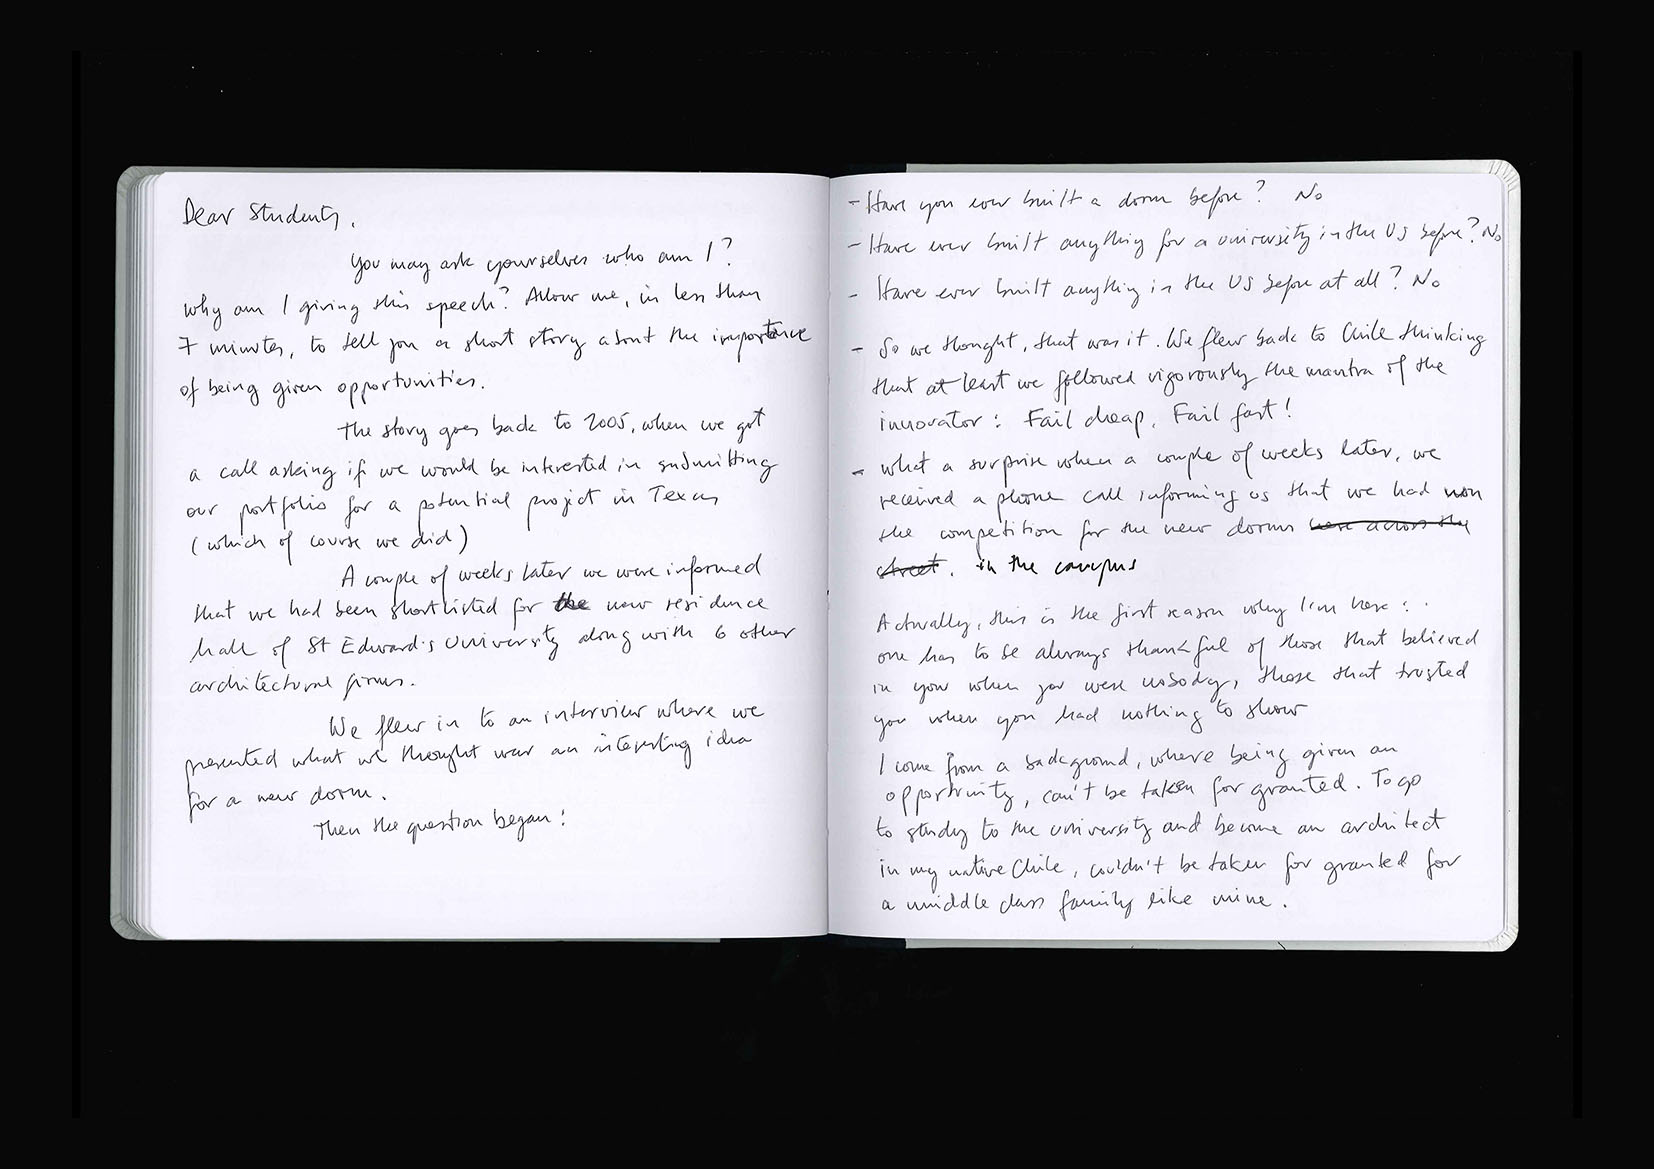 Dear Students,
You may ask yourselves who am I?
why am I giving this speech? Allow me, in less than
7 minutes, to tell you a short story about the importance
of being given opportunities.
The story goes back to 2005, when we got
a call asking if we would be interested in submitting
our portfolio for a potential project in Texas
(which of course we did)
A couple of weeks later we were informed
that we had been shortlisted for the new residence
hall of St Edward's University along with 6 other
architectural firms.
We flew in to an interview where we
presented what we thought was an interesting idea
for a new dorm.
Then the question began:
- Have you ever built a dorm before? No
- Have ever built anything for a university in the US before? No
- Have ever built anything in the US before at all? No
- So we thought, that was it. We flew back to Chile thinking
that at least we followed vigorously the mantra of the
innovator: Fail cheap, Fail fast!
- what a surprise when a couple of weeks later, we
received a phone call informing us that we had won
the competition for the new dorms here across the
street. in the campus
Actually, this is the first reason why I'm here:
one has to be always thankful of those that believed
in you when you were nobody, those that trusted
you when you had nothing to show
I come from a background, where being given an
opportunity, can't be taken for granted. To go
to study to the university and become an architect
in my native Chile, couldn't be taken for granted for
a middle class family like mine.